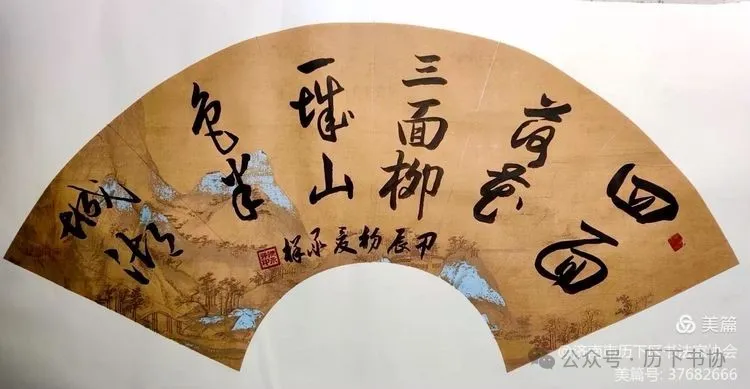 四面
荷花
三面柳
一城山
色半
城湖
甲辰初夏承祥
美篇
@济南市历下区书法家协会
公众号·历下书协
美篇号: 37682666